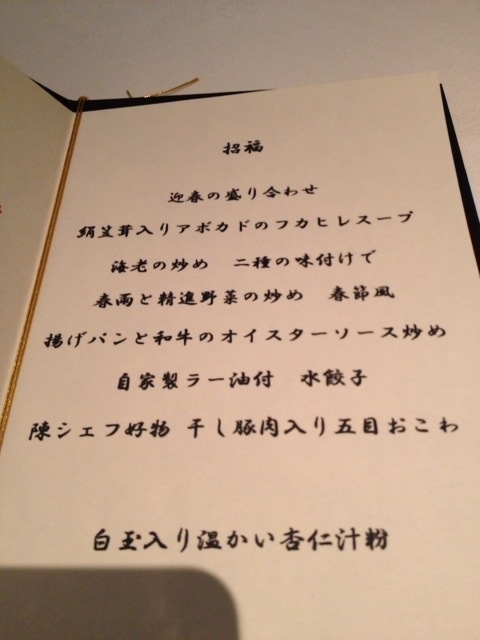 招福
迎春の盛り合わせ
絹笠茸入りアボカドのフカヒレスープ
海老の炒め 二種の味付けで
春雨と精進野菜の炒め 春節風
揚げパンと和牛のオイスターソース炒め
自家製ラー油付 水餃子
陳シェフ好物 干し豚肉入り五目おこわ
白玉入り温かい杏仁汁粉